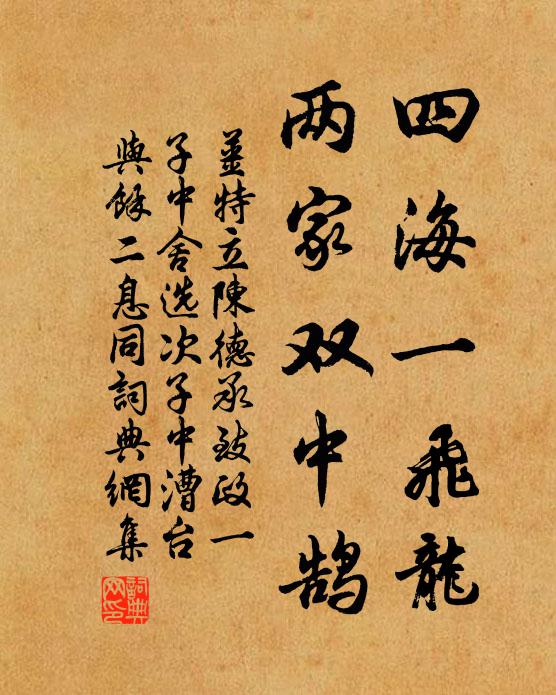 四海一飛龍
两家双中鹄
姜特立陳德承致政一
子中舍选次子中漕台
與餘二息同詞典網集
詞典网印